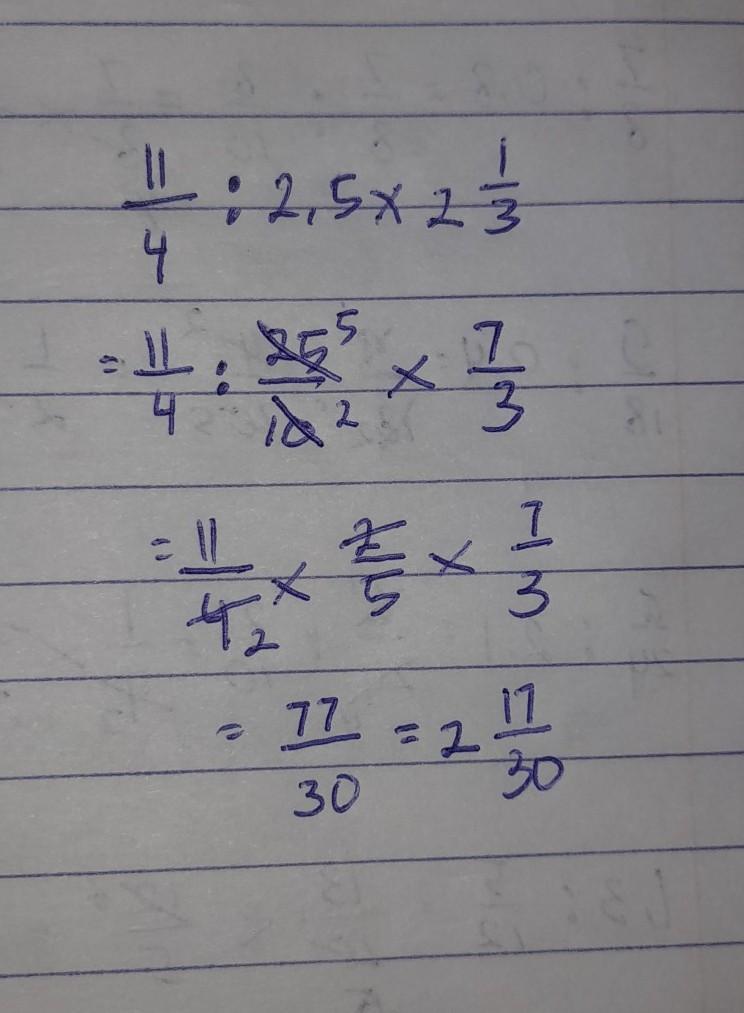 11/4 : 2,5 x 2 1/3
= 11/4 : 25 5/10 2 x 7/3
= 11/4 2 x 2/5 x 7/3
= 77/30 = 2 17/30